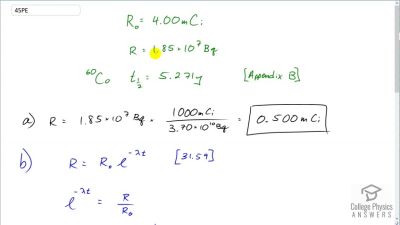 45PE
R₀ = 4.00 mCi
R = 1.85 × 10⁷ Bq
⁶⁰Co t½ = 5.271y [Appendix B]
a) R = 1.85 × 10⁷ Bq × 1000 mCi / 3.70 × 10¹⁰ Bq = 0.500 mCi
b) R = R₀ e^(-λt) [31.59]
e^(-λt) = R / R₀
College Physics
ANSWERS